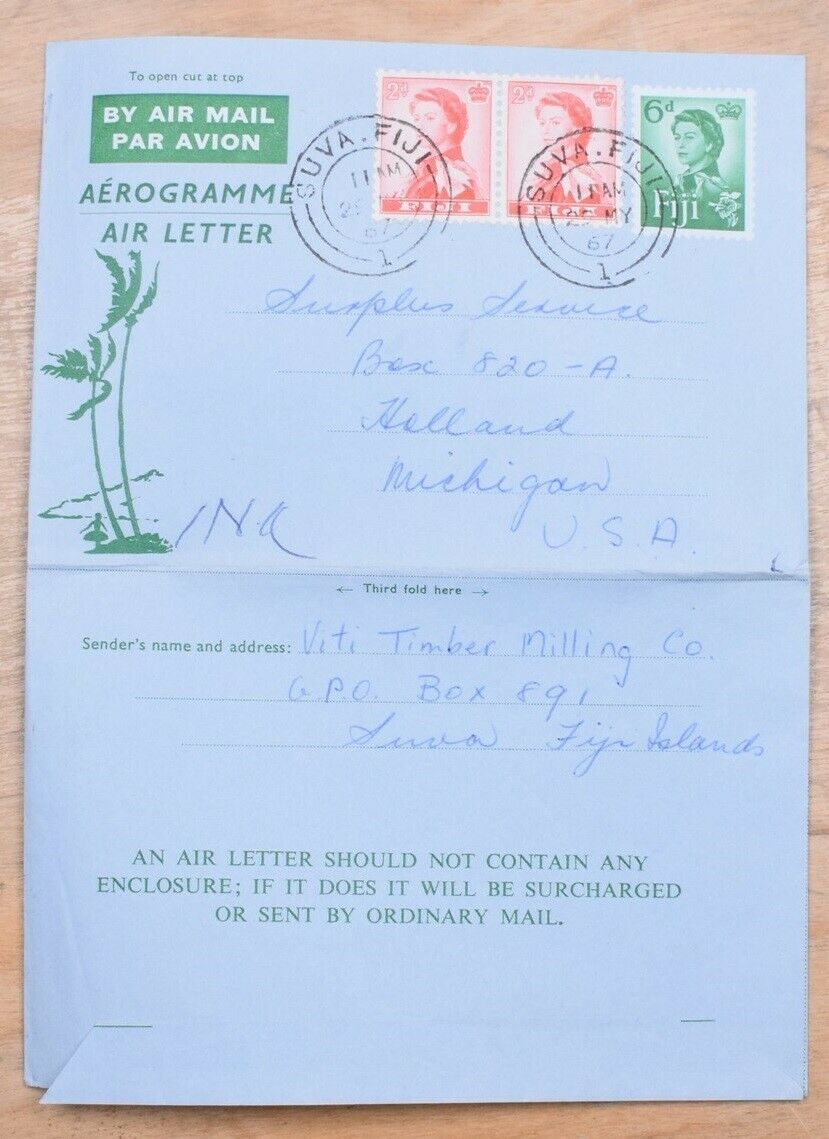 To open cut at top
BY AIR MAIL
PAR AVION
AÉROGRAMME
AIR LETTER
2d
FIJI
2d
FIJI
6d
Fiji
SUVA . FIJI
11 AM
67
1
SUVA . FIJI
11 AM
MY
67
1
Surplus Service
Box 820-A.
Holland
Michigan
U.S.A.
← Third fold here →
Sender's name and address: Viti Timber Milling Co.
G.P.O. Box 891
Suva Fiji Islands
AN AIR LETTER SHOULD NOT CONTAIN ANY
ENCLOSURE; IF IT DOES IT WILL BE SURCHARGED
OR SENT BY ORDINARY MAIL.